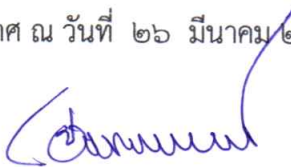 าศ ณ วันที่ ๒๖ มีนาคม ๒